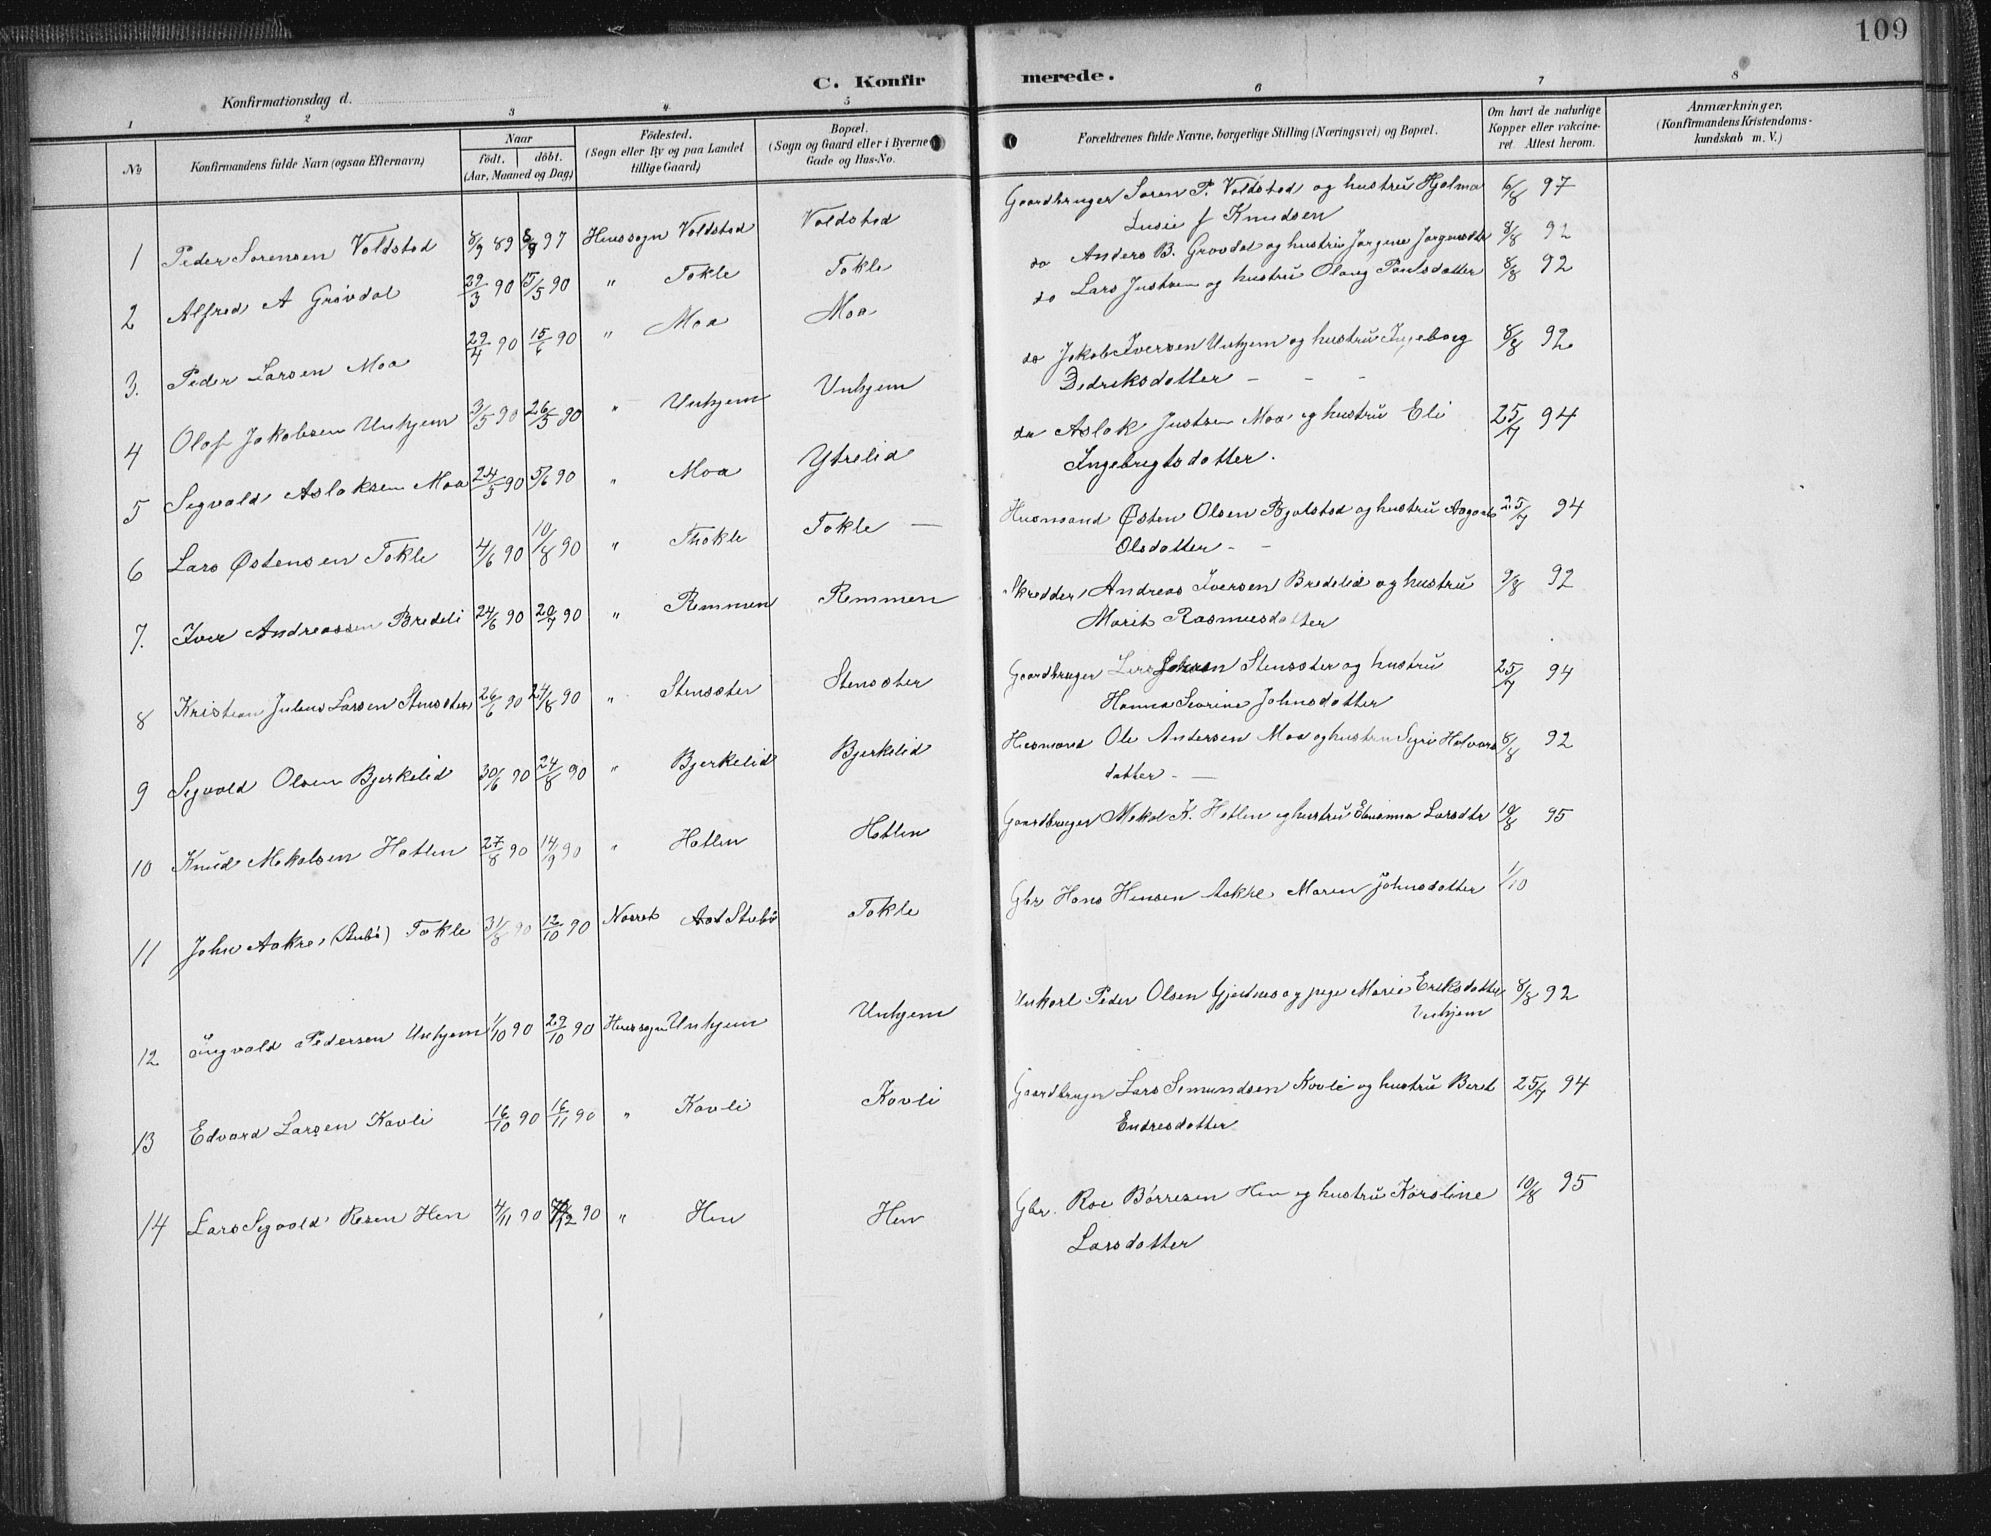 109
C. Konfirmerede.
Konfirmationsdag d.
1 2 3 4 5 6 7 8
No
Konfirmandens fulde Navn (ogsaa Efternavn)
Naar
födt. döbt.
(Aar, Maaned og Dag)
Födested.
(Sogn eller By og paa Landet
tillige Gaard)
Bopæl.
(Sogn og Gaard eller i Byerne
Gade og Hus-No.
Forældrenes fulde Navne, borgerlige Stilling (Næringsvei) og Bopæl.
Om havt de naturlige
Kopper eller vakcine-
ret. Attest herom.
Anmærkninger.
(Konfirmandens Kristendoms-
kundskab m. V.)
1 Peder Sorensen Voldstad 8/9 89 97 Henssogn Voldstad Voldstad Gaardbruger Soren P. Voldstad og hustru Hjalma 97
Lusie f Knudsen
2 Alfred A Grövdal 29/3 90 15/5 90 " Tokle Tokle do Anders B. Grovdal og hustru Jorgine Jorgensdtr 8/8 92
3. Peder Larsen Moa 29/4 90 15/6 90 " Moa Moa do Lars Justsen og hustru Olaug Paulsdatter 8/8 92
4 Olaf Jakobsen Unhjem 3/5 90 26/5 90 " Unhjem Unhjem do Jakob Iversen Unhjem og hustru Ingeborg 8/8 92
Dedriksdatter - - -
5 Segvald Aslaksen Moa 24/5 90 5/6 90 " Moa Ytrelid do Aslak Justsen Moa og hustru Eli 25/7 94
Ingebrigtsdatter.
6 Lars Østensen Tokle 4/6 90 10/8 90 " Thokle Tokle — Husmand Østen Olsen Bjolstad og hustru 25/7 94
Olsdatter - -
7. Iver Andreassen Bredeli 24/6 90 20/7 90 " Remmen Remmen Skredder Andreas Iversen Bredelid og hustru 9/8 92
Marit Rasmusdatter
8 Kristian Julius Larsen Stenseter 26/6 90 24/8 90 " Stenseter Stenseter Gaardbruger Lars Johnsen Stenseter og hustru 25/7 94
Hanna Severine Johnsdatter
9 Segvald Olsen Bjerkelid 30/6 90 24/8 90 " Bjerkelid Bjerkelid Husmand Ole Andersen Moa og hustru Sigri Halvors 8/8 92
datter - —
10 Knud Mekalsen Hatlen 27/8 90 14/9 90 " Hatlen Hatlen Gaardbruger Mekal K. Hatlen og hustru Larsdtr 10/8 95
11 John Aakre (Stubö) Tokle 31/8 90 12/10 90 Norret Stubö Tokle Gbr Hans Hansen Aakre Maren Johnsdatter 1/10
12 Ingvald Pedersen Unhjem 1/10 90 29/10 90 Henssogn Unhjem Unhjem Unkarl Peder Olsen Gjertnes og pige Marie Eriksdatter 8/8 92
Unhjem
13 Edvard Larsen Kavli 16/10 90 16/11 90 " Kavli Kavli Gaardbruger Lars Simundsen Kavli og hustru Beret 25/7 94
Endresdatter
14 Lars Segvald Roesen Hen 4/11 90 12 90 " Hen Hen Gbr. Roe Börresen Hen og hustru Karoline 10/8 95
Larsdatter